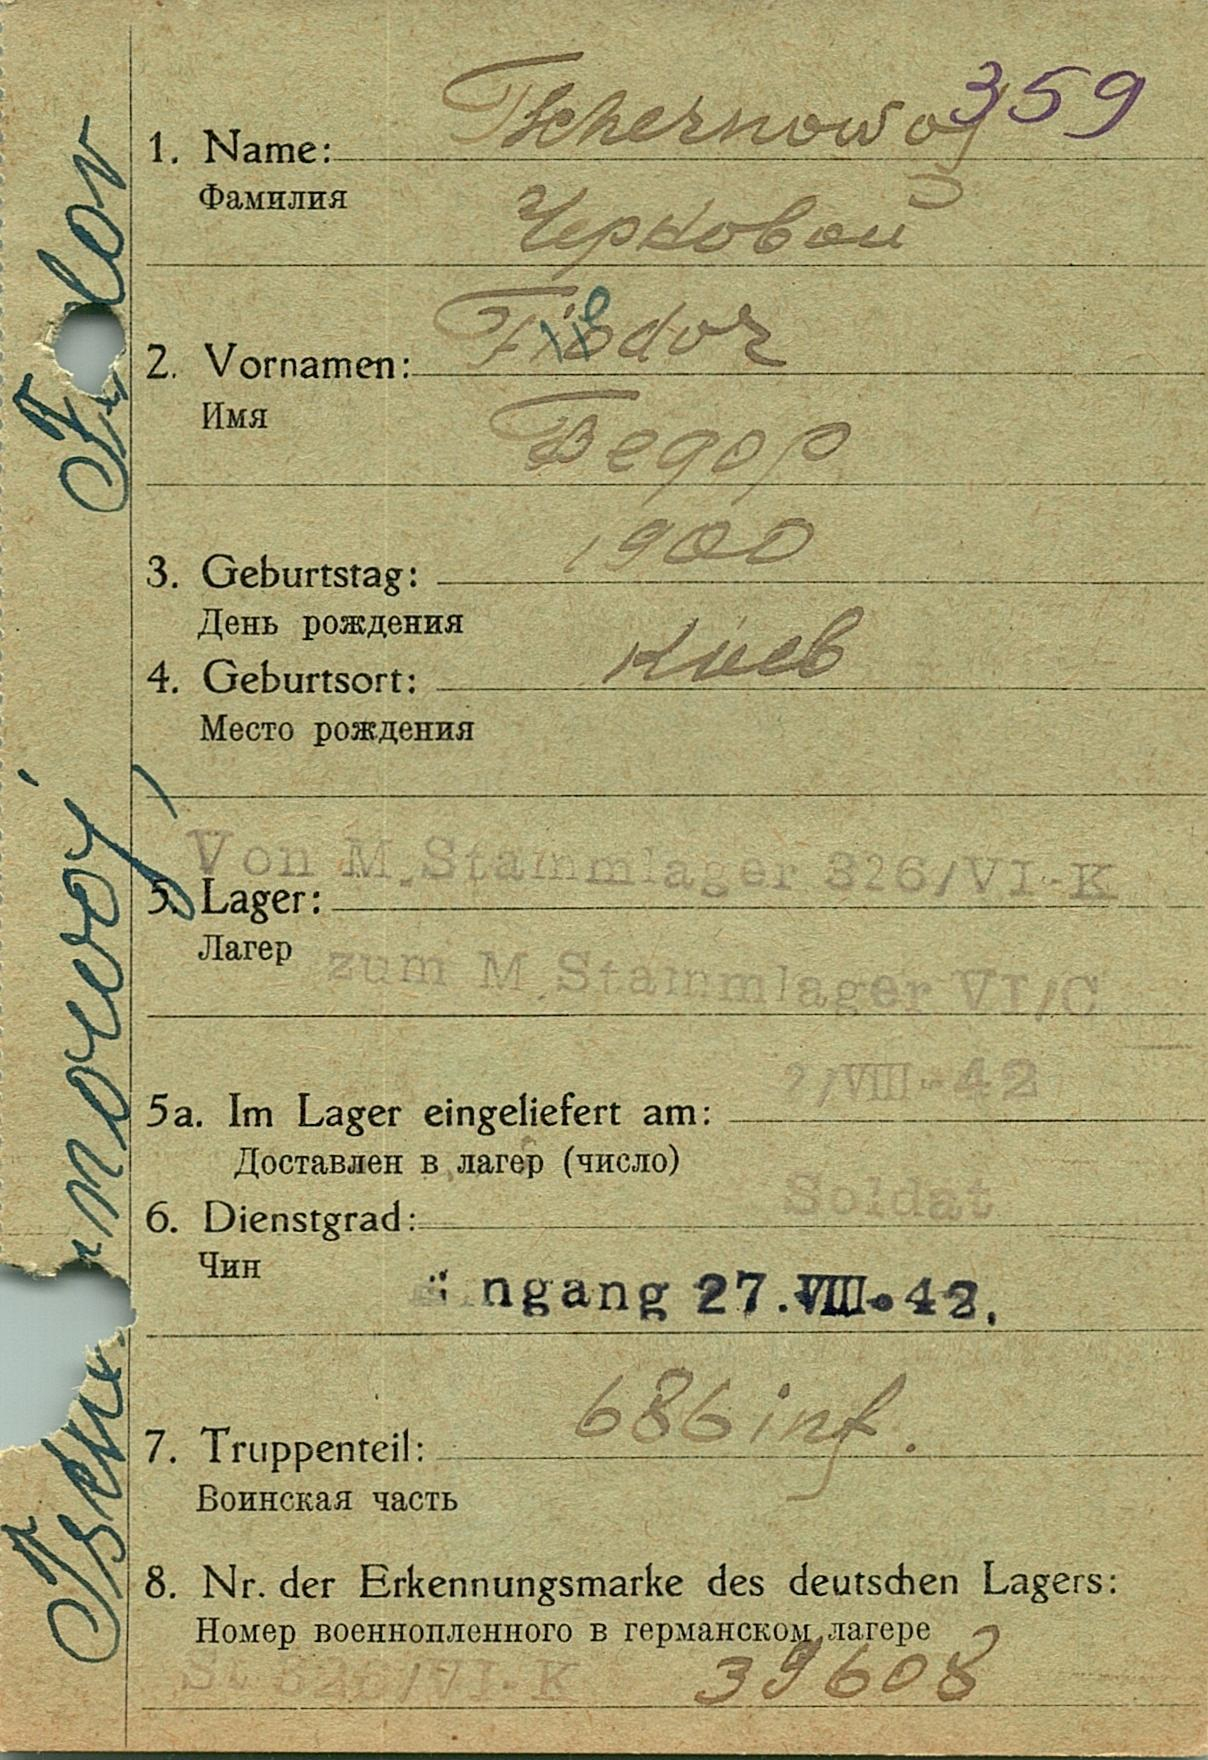 359
1. Name: Tschernowoj
Фамилия
Черновой
2. Vornamen: Fiodor
Имя
Федор
1900
3. Geburtstag:
День рождения
Киев
4. Geburtsort:
Место рождения
Von M.Stammlager 326/VI-K
5. Lager:
Лагер
zum M.Stammlager VI/C
/VIII-42
5a. Im Lager eingeliefert am:
Доставлен в лагер (число)
Soldat
6. Dienstgrad:
Чин
ngang 27.VIII.42.
686 inf.
7. Truppenteil:
Воинская часть
8. Nr. der Erkennungsmarke des deutschen Lagers:
Номер военнопленного в германском лагере
St 326/VI-K 39608